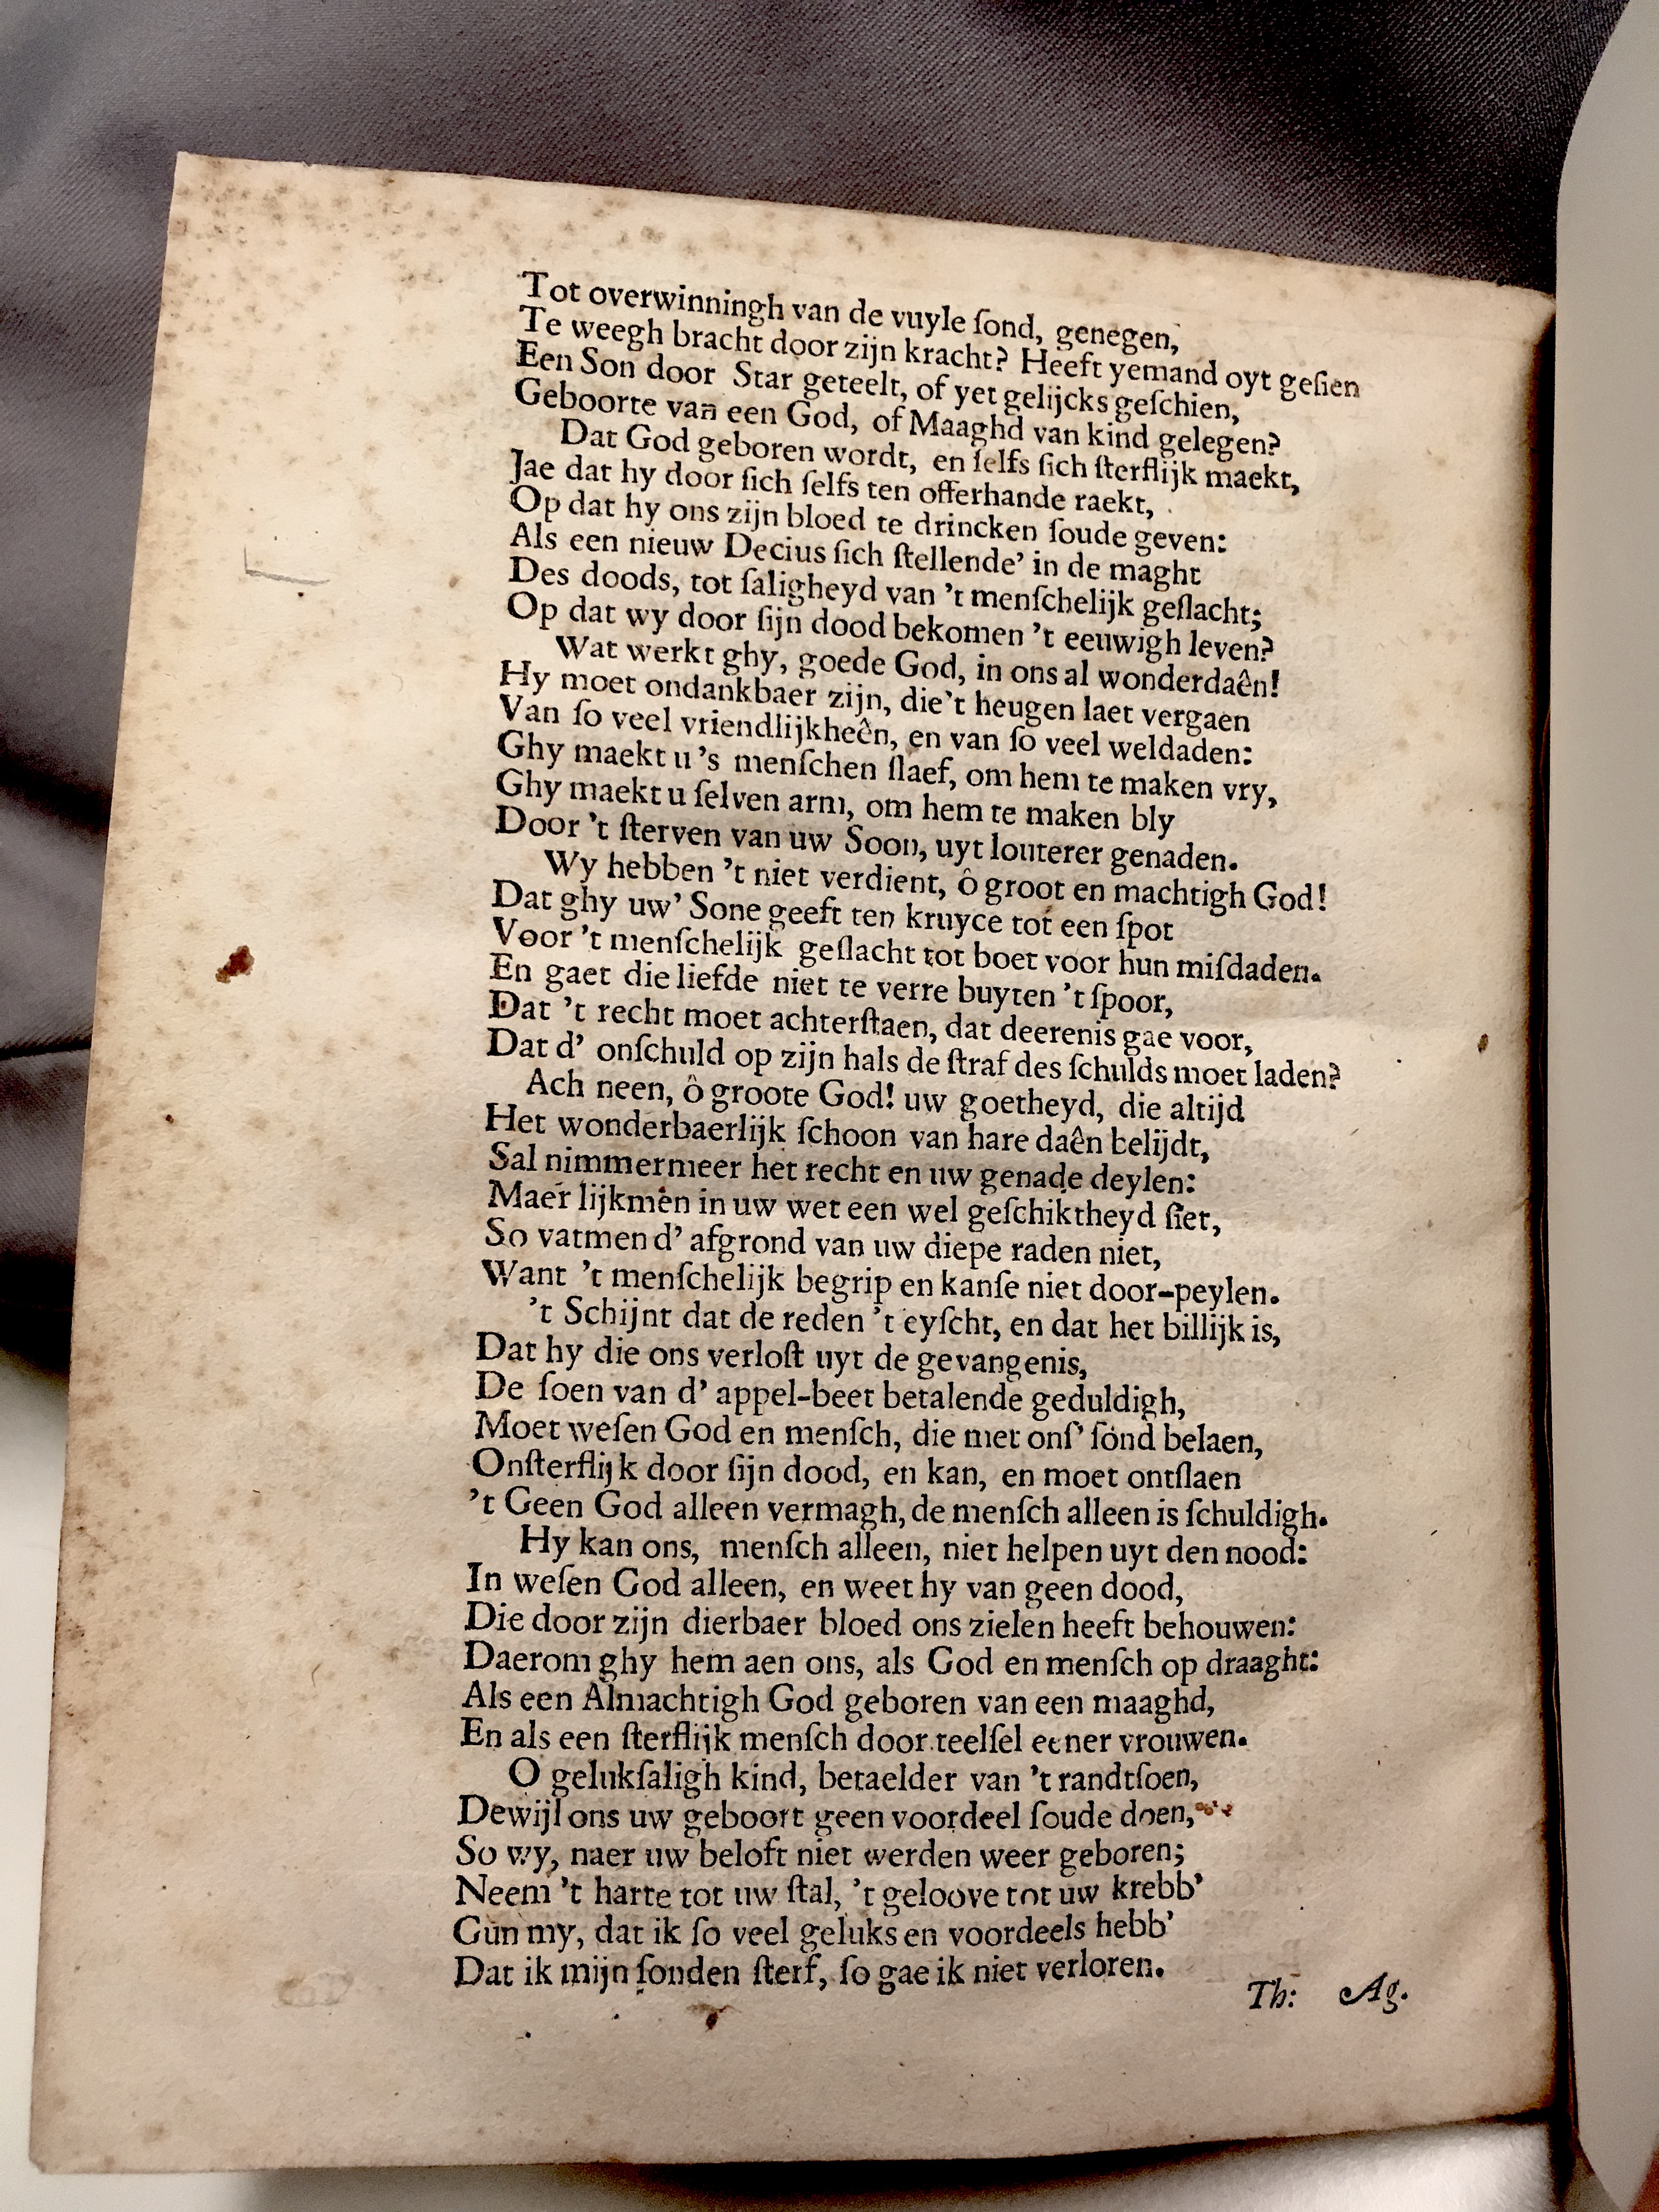 Tot overwinningh van de vuyle ſond, genegen,
Te weegh bracht door zijn kracht? Heeft yemand oyt geſien
Een Son door Star geteelt, of yet gelijcks geſchien,
Geboorte van een God, of Maaghd van kind gelegen?
Dat God geboren wordt, en ſelfs ſich ſterflijk maekt,
Jae dat hy door ſich ſelfs ten offerhande raekt,
Op dat hy ons zijn bloed te drincken ſoude geven:
Als een nieuw Decius ſich ſtellende' in de maght
Des doods, tot ſaligheyd van 't menſchelijk geſlacht;
Op dat wy door ſijn dood bekomen 't eeuwigh leven?
Wat werkt ghy, goede God, in ons al wonderdaên!
Hy moet ondankbaer zijn, die't heugen laet vergaen
Van ſo veel vriendlijkheên, en van ſo veel weldaden:
Ghy maekt u 's menſchen ſlaef, om hem te maken vry,
Ghy maekt u ſelven arm, om hem te maken bly
Door 't ſterven van uw Soon, uyt louterer genaden.
Wy hebben 't niet verdient, ô groot en machtigh God!
Dat ghy uw' Sone geeft ten kruyce tot een ſpot
Voor 't menſchelijk geſlacht tot boet voor hun miſdaden.
En gaet die liefde niet te verre buyten 't ſpoor,
Dat 't recht moet achterſtaen, dat deerenis gae voor,
Dat d' onſchuld op zijn hals de ſtraf des ſchulds moet laden?
Ach neen, ô groote God! uw goetheyd, die altijd
Het wonderbaerlijk ſchoon van hare daên belijdt,
Sal nimmermeer het recht en uw genade deylen:
Maer lijkmen in uw wet een wel geſchiktheyd ſiet,
So vatmen d' afgrond van uw diepe raden niet,
Want 't menſchelijk begrip en kanſe niet door-peylen.
't Schijnt dat de reden 't eyſcht, en dat het billijk is,
Dat hy die ons verloſt uyt de gevangenis,
De ſoen van d' appel-beet betalende geduldigh,
Moet weſen God en menſch, die met onſ' ſond belaen,
Onſterflijk door ſijn dood, en kan, en moet ontſlaen
't Geen God alleen vermagh, de menſch alleen is ſchuldigh.
Hy kan ons, menſch alleen, niet helpen uyt den nood:
In weſen God alleen, en weet hy van geen dood,
Die door zijn dierbaer bloed ons zielen heeft behouwen:
Daerom ghy hem aen ons, als God en menſch op draaght:
Als een Almachtigh God geboren van een maaghd,
En als een ſterflijk menſch door teelſel eener vrouwen.
O gelukſaligh kind, betaelder van 't randtſoen,
Dewijl ons uw geboort geen voordeel ſoude doen,
So wy, naer uw beloft niet werden weer geboren;
Neem 't harte tot uw ſtal, 't geloove tot uw krebb'
Gun my, dat ik ſo veel geluks en voordeels hebb'
Dat ik mijn ſonden ſterf, ſo gae ik niet verloren.
Th: Ag.